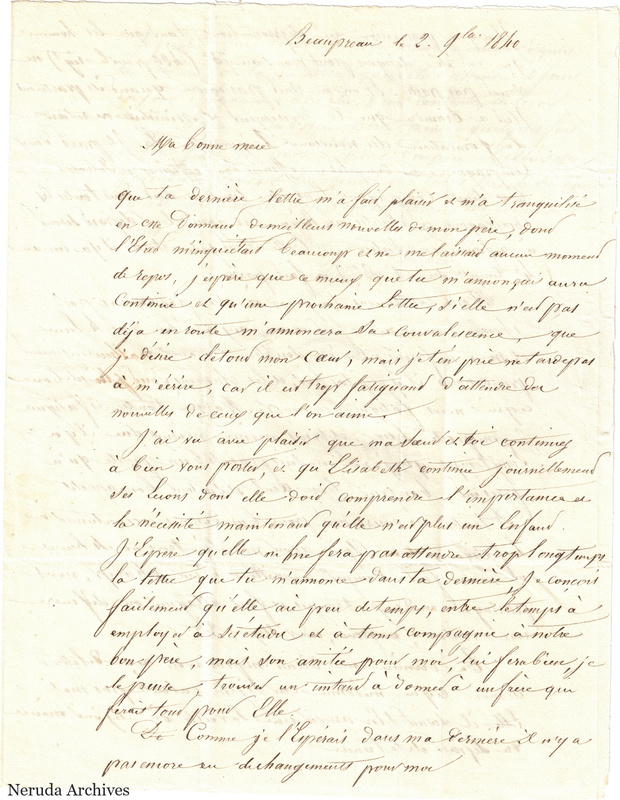 Beaupreau le 2. 9bre 1840
Ma bonne mere
que ta dernière lettre m'a fait plaisir et m'a tranquilisé
en me Donnant de meilleurs nouvelles de mon père, dont
l'Etat m'inquietait beaucoup et ne me laissait aucun moment
de repos, j'espère que ce mieux que tu m'annonçais aura
Continué et qu'une prochaine Lettre, si elle n'est pas
déja en route m'annoncera sa Convalescence, que
je désire de tout mon Cœur, mais je t'en prie ne tarde pas
à m'écrire, car il est trop fatiguant d'attendre des
nouvelles de ceux que l'on aime.
J'ai vu avec plaisir que ma sœur et toi continuez
à bien vous porter, et qu'Elisabeth continue journellement
ses Lecons dont elle doit comprendre l'importance et
la nécéssité maintenant qu'elle n'est plus un Enfant.
J'Espère qu'elle ne fera pas attendre trop longtemps
la lettre que tu m'annonce dans ta dernière, Je conçois
facilement qu'elle aie peu de temps, entre le temps à
employer à ses études et à tenir compagnie à notre
bon père, mais son amitée pour moi, lui fera bien, je
le pense, trouver un instant à donner à un frère qui
ferait tout pour Elle.
Comme je l'Espérais dans ma dernière il n'y a
pas encore eu de changements pour moi
Neruda Archives